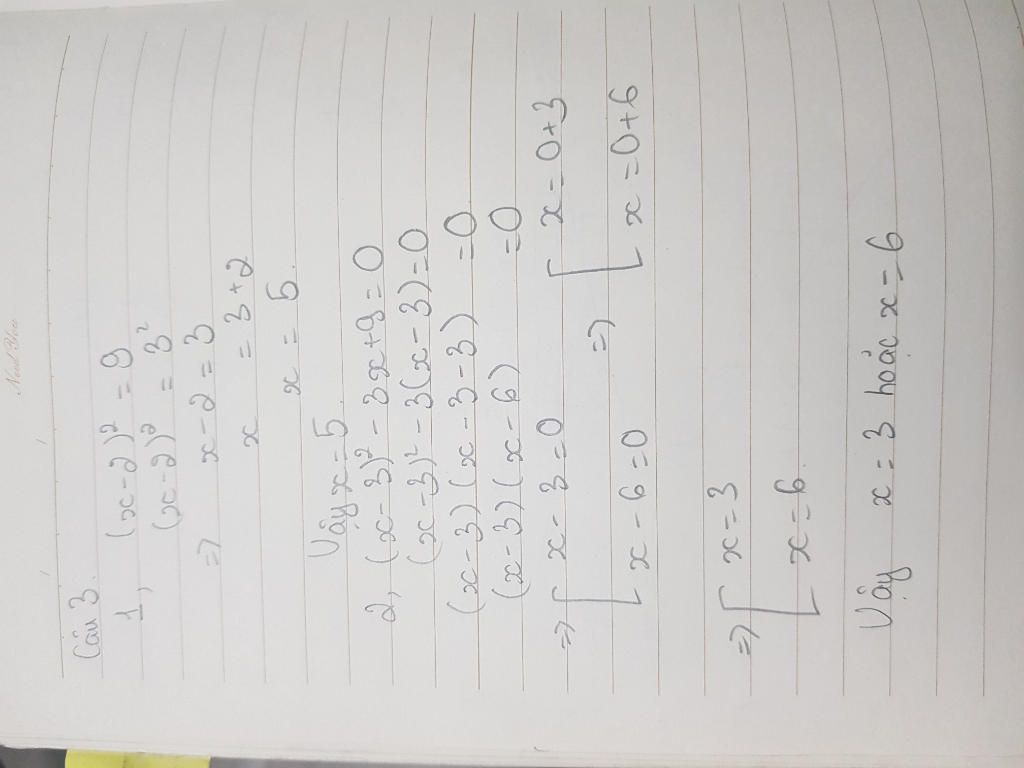 Câu 3.
1, (x-2)² = 9
(x-2)² = 3²
=> x-2 = 3
x = 3+2
x = 5.
Vậy x = 5
2, (x-3)² - 3x+9 = 0
(x-3)² - 3(x-3) = 0
(x-3)(x-3-3) = 0
(x-3)(x-6) = 0
=> [ x-3=0 => [ x=0+3
[ x-6=0 [ x=0+6
=> [ x=3
[ x=6.
Vậy x=3 hoặc x=6